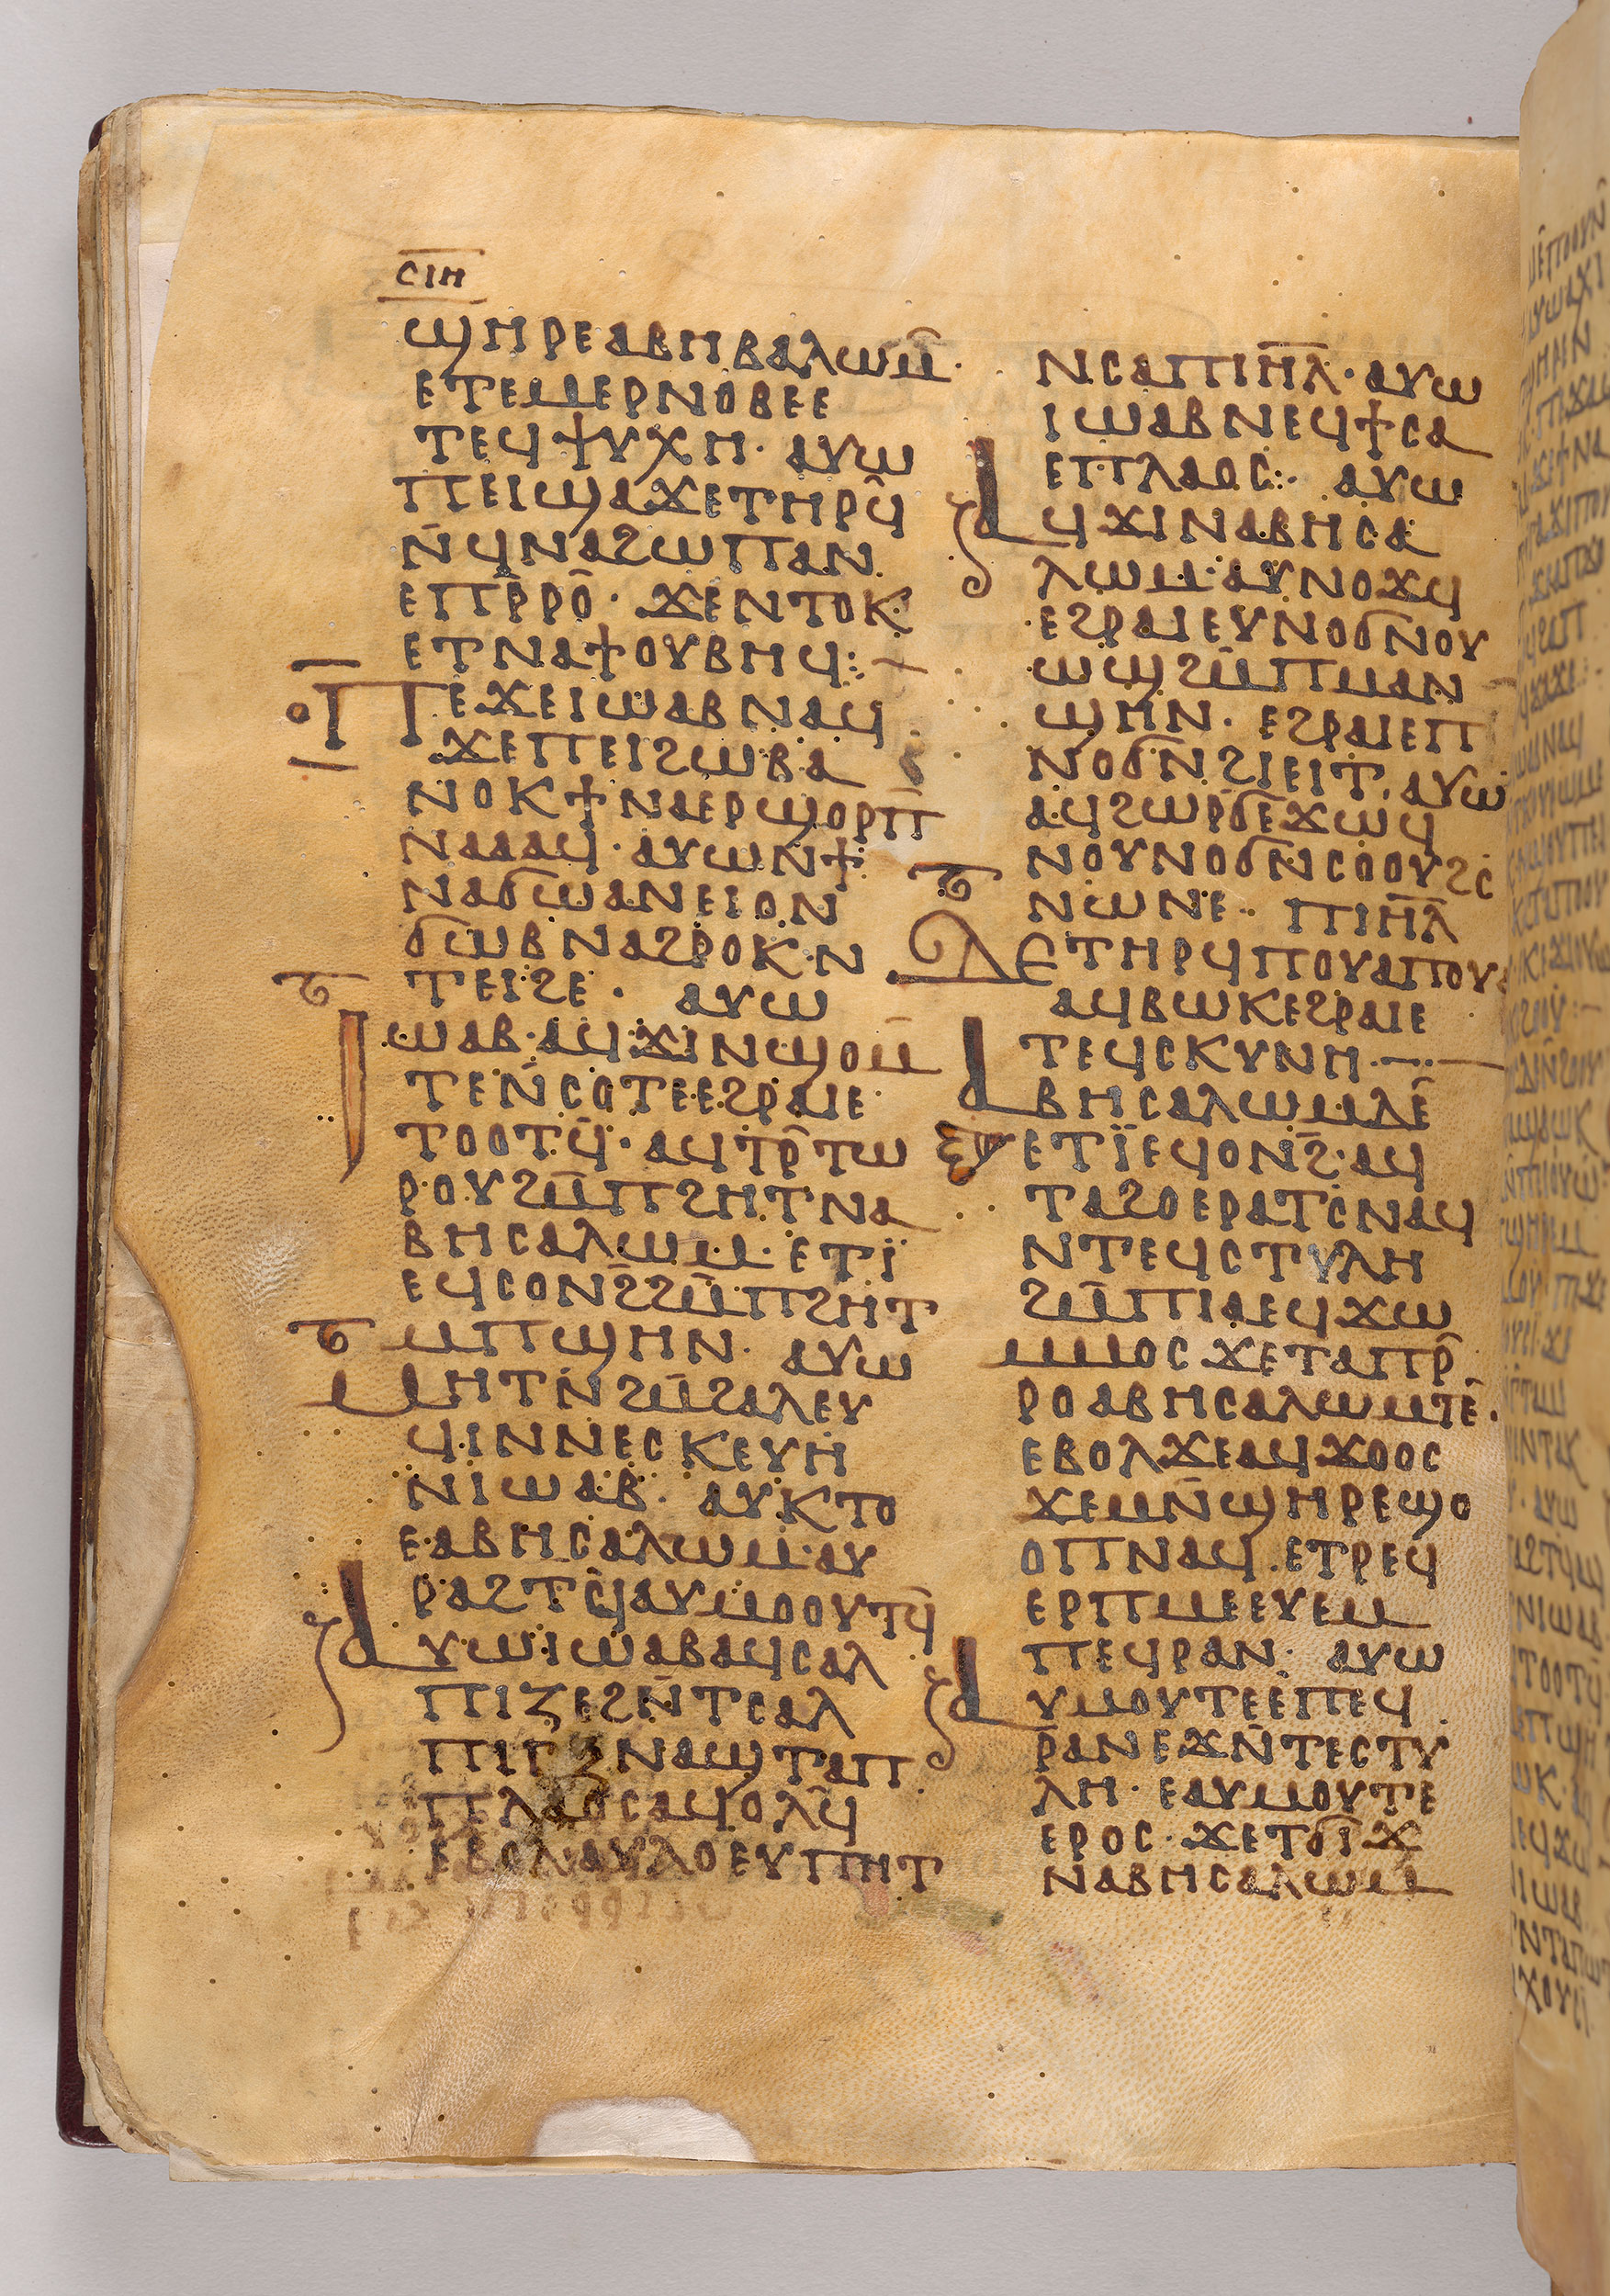 ⲥⲓⲏ
ϣⲏⲣⲉⲁⲃⲏⲃⲁⲗⲱⲙ̄·
ⲉⲧⲉⲙⲉⲣⲛⲟⲃⲉⲉ
ⲧⲉϥⲯⲩⲭⲏ· ⲁⲩⲱ
ⲡⲉⲓϣⲁϫⲉⲧⲏⲣϥ̄
ⲛ̄ϥⲛⲁϩⲱⲡⲁⲛ
ⲉⲡⲣ̄ⲣⲟ̄· ϫⲉⲛⲧⲟⲕ
ⲉⲧⲛⲁϯⲟⲩⲃⲏϥ:
ⲡⲉϫⲉⲓⲱⲁⲃⲛⲁϥ
ϫⲉⲡⲉⲓϩⲱⲃⲁ
ⲛⲟⲕϯⲛⲁⲉⲣϣⲟⲣⲡ̄
ⲛⲁⲁⲁϥ· ⲁⲩⲱⲛ̄ϯ
ⲛⲁϭⲱⲁⲛⲉⲓⲟⲛ
ϭⲱⲃⲛⲁϩⲣⲟⲕ·ⲛ
ⲧⲉⲓϩⲉ· ⲁⲩⲱ
ⲓⲱⲁⲃ·ⲁϥϫⲓⲛϣⲟⲙ̄
ⲧⲉⲛ̄ⲥⲟⲧⲉⲉϩⲣⲁⲓⲉ
ⲧⲟⲟⲧϥ̄· ⲁϥⲧⲣ̄ⲧⲱ
ⲣⲟⲩϩⲙ̄ⲡϩⲏⲧⲛⲁ
ⲃⲏⲥⲁⲗⲱⲙ· ⲉⲧⲓ̈
ⲉϥⲥⲟⲛϩ̄ϩⲙ̄ⲡϩⲏⲧ
ⲙⲡϣⲏⲛ· ⲁⲩⲱ
ⲙⲏⲧⲛ̄ϩⲙ̄ϩⲁⲗⲉⲩ
ϥⲓⲛⲛⲉⲥⲕⲉⲩⲏ
ⲛⲓⲱⲁⲃ· ⲁⲩⲕⲧⲟ
ⲉⲁⲃⲏⲥⲁⲗⲱⲙ·ⲁⲩ
ⲣⲁϩⲧϥ̄ⲁⲩⲙⲟⲟⲩⲧϥ̄
ⲁⲩⲱⲓⲱⲁⲃⲁϥⲥⲁⲗ
ⲡⲓⲍⲉϩⲛ̄ⲧⲥⲁⲗ
ⲡⲓⲅⲝⲛⲁϣⲧⲁⲡ
ⲡⲗⲁⲟⲥⲁϥⲟⲗϥ̄
ⲉⲃⲟⲗ·ⲁⲩⲗⲟⲉⲩⲡⲏⲧ
ⲛⲥⲁⲡⲓⲏ̄ⲗ̄· ⲁⲩⲱ
ⲓⲱⲁⲃⲛⲉϥϯⲥⲁ
ⲉⲡⲗⲁⲟⲥ: ⲁⲩⲱ
ⲁϥϫⲓⲛⲁⲃⲏⲥⲁ
ⲗⲱⲙ·ⲁⲩⲛⲟϫϥ
ⲉϩⲣⲁⲓⲉⲩⲛⲟϭⲛⲟⲩ
ⲱϣϩⲙ̄ⲡⲙⲁⲛ
ϣⲏⲛ· ⲉϩⲣⲁⲓⲉⲡ
ⲛⲟϭⲛϩⲓⲉⲓⲧ· ⲁⲩⲱ
ⲁϥϩⲱⲣϭⲉϫⲱϥ
ⲛⲟⲩⲛⲟϭⲛⲥⲟⲟⲩϩⲥ
ⲛⲱⲛⲉ· ⲡⲓⲏ̄ⲗ̄
ⲇⲉⲧⲏⲣϥⲡⲟⲩⲁⲡⲟⲩⲁ
ⲁϥⲃⲱⲕⲉϩⲣⲁⲓⲉ
ⲧⲉϥⲥⲕⲩⲛⲏ·
ⲁⲃⲏⲥⲁⲗⲱⲙⲇⲉ
ⲉⲧⲓ̈ⲉϥⲟⲛϩ̄·ⲁϥ
ⲧⲁϩⲟⲉⲣⲁⲧⲥⲛⲁϥ
ⲛⲧⲉϥⲥⲧⲩⲗⲏ
ϩⲙ̄ⲡⲓⲁⲉϥϫⲱ
ⲙⲙⲟⲥϫⲉⲧⲁⲡⲣ̄
ⲣⲟⲁⲃⲏⲥⲁⲗⲱⲙⲧⲉ·
ⲉⲃⲟⲗϫⲉⲁϥϫⲟⲟⲥ
ϫⲉⲙⲛ̄ϣⲏⲣⲉϣⲟ
ⲟⲡⲛⲁϥ·ⲉⲧⲣⲉϥ
ⲉⲣⲡⲙⲉⲉⲩⲉⲙ
ⲡⲉϥⲣⲁⲛ· ⲁⲩⲱ
ⲁⲩⲙⲟⲩⲧⲉⲉⲡⲉϥ
ⲣⲁⲛⲉϫⲛ̄ⲧⲉⲥⲧⲩ
ⲗⲏ· ⲉⲁⲩⲙⲟⲩⲧⲉ
ⲉⲣⲟⲥ·ϫⲉⲧϭⲓϫ
ⲛⲁⲃⲏⲥⲁⲗⲱⲙ